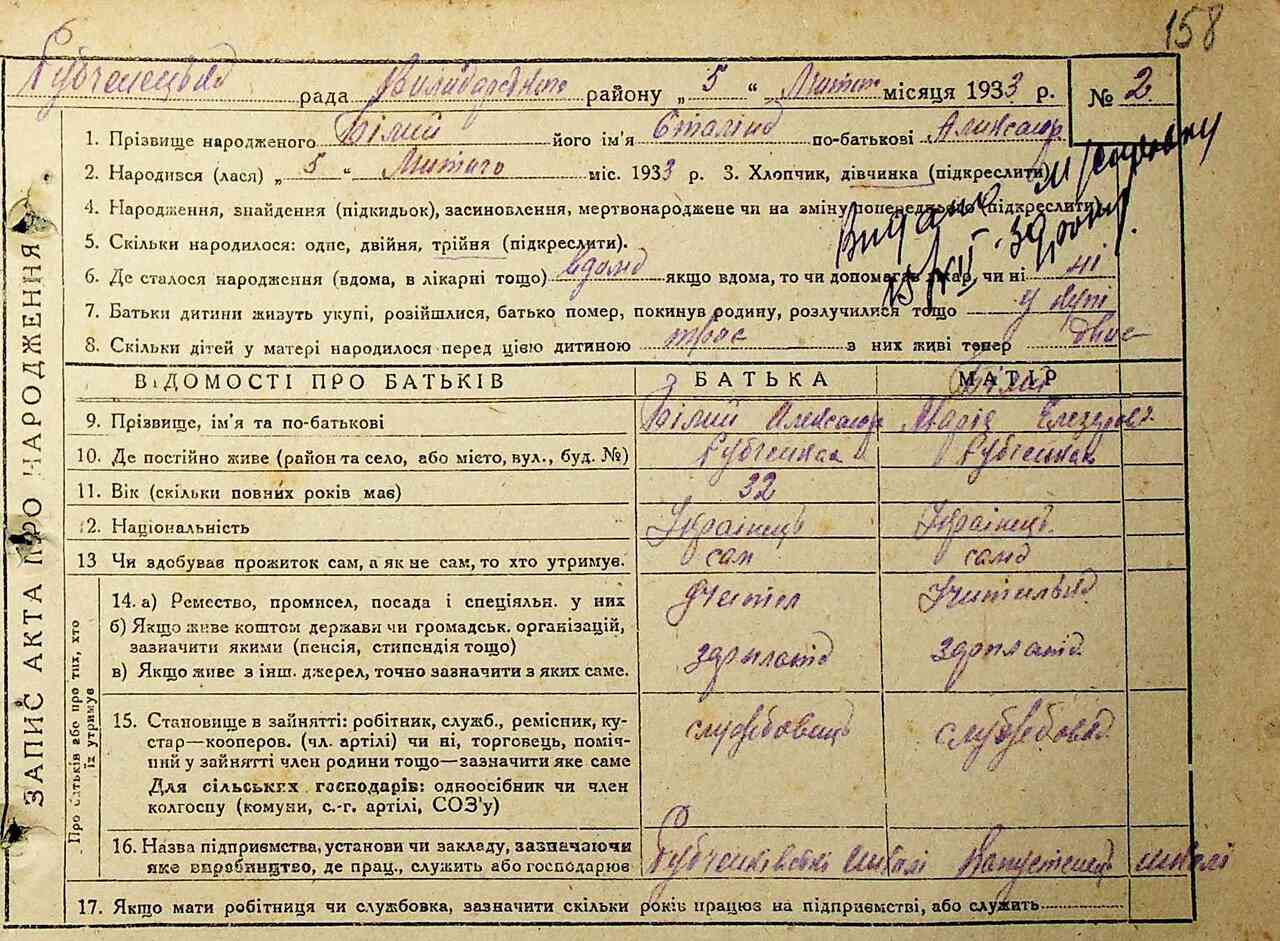 158
рада району „ 5 “ Лютого місяця 1933 р. № 2
1. Прізвище народженого Білий його ім'я Сталіна по-батькові Александр
2. Народився (лася) „ 5 “ Лютаго міс. 1933 р. 3. Хлопчик, дівчинка (підкреслити)
4. Народження, знайдення (підкидьок), засиновлення, мертвонароджене чи на зміну попереднього (підкреслити)
5. Скільки народилося: одне, двійня, трійня (підкреслити).
6. Де сталося народження (вдома, в лікарні тощо) вдома якщо вдома, то чи допомагав лікар, чи ні ні
7. Батьки дитини живуть укупі, розійшлися, батько помер, покинув родину, розлучилися тощо у купі
8. Скільки дітей у матері народилося перед цією дитиною троє з них живі тепер двоє
ЗАПИС АКТА ПРО НАРОДЖЕННЯ
ВІДОМОСТІ ПРО БАТЬКІВ БАТЬКА МАТІР
9. Прізвище, ім'я та по-батькові Білий Александр Марія
10. Де постійно живе (район та село, або місто, вул., буд. №) Рубченках Рубченках
11. Вік (скільки повних років має) 32
12. Національність Українець Українець
13 Чи здобував прожиток сам, а як не сам, то хто утримує. сам сама
Про батьків або про тих, хто
їх утримує
14. а) Ремество, промисел, посада і спеціяльн. у них учител Учителька
б) Якщо живе коштом держави чи громадськ. організацій,
зазначити якими (пенсія, стипендія тощо) зарплата зарплата
в) Якщо живе з інш. джерел, точно зазначити з яких саме.
15. Становище в зайнятті: робітник, служб., ремісник, ку-
стар—кооперов. (чл. артілі) чи ні, торговець, поміч- службовець службова
ний у зайнятті член родини тощо—зазначити яке саме
Для сільських господарів: одноосібник чи член
колгоспу (комуни, с.-г. артілі, СОЗ'у)
16. Назва підприємства, установи чи закладу, зазначаючи
яке виробництво, де прац., служить або господарює Рубченківські школі школі
17. Якщо мати робітниця чи службовка, зазначити скільки років працює на підприємстві, або служить